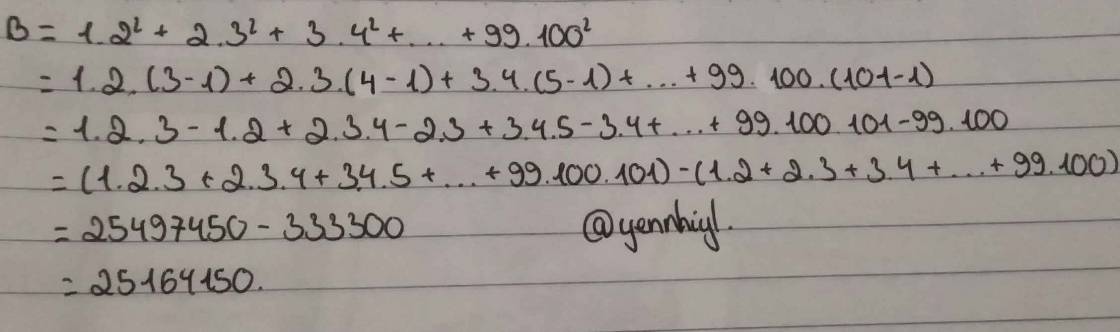 B = 1.2² + 2.3² + 3.4² + ... + 99.100²
= 1.2.(3-1) + 2.3.(4-1) + 3.4.(5-1) + ... + 99.100.(101-1)
= 1.2.3 - 1.2 + 2.3.4 - 2.3 + 3.4.5 - 3.4 + ... + 99.100.101 - 99.100
= (1.2.3 + 2.3.4 + 3.4.5 + ... + 99.100.101) - (1.2 + 2.3 + 3.4 + ... + 99.100)
= 25497450 - 333300 @yennhiyl.
= 25164150.